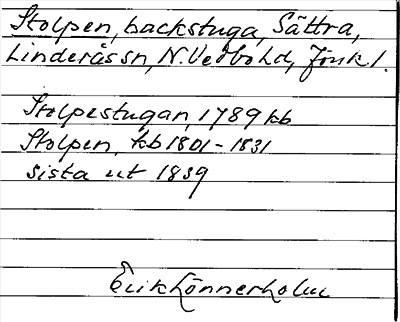 Stolpen, backstuga, Sättra,
Linderås sn, N. Vedbo hd, Jönk l.
Stolpestugan, 1789 kb
Stolpen, kb 1801-1831
sista ut 1839
Erik Lönnerholm